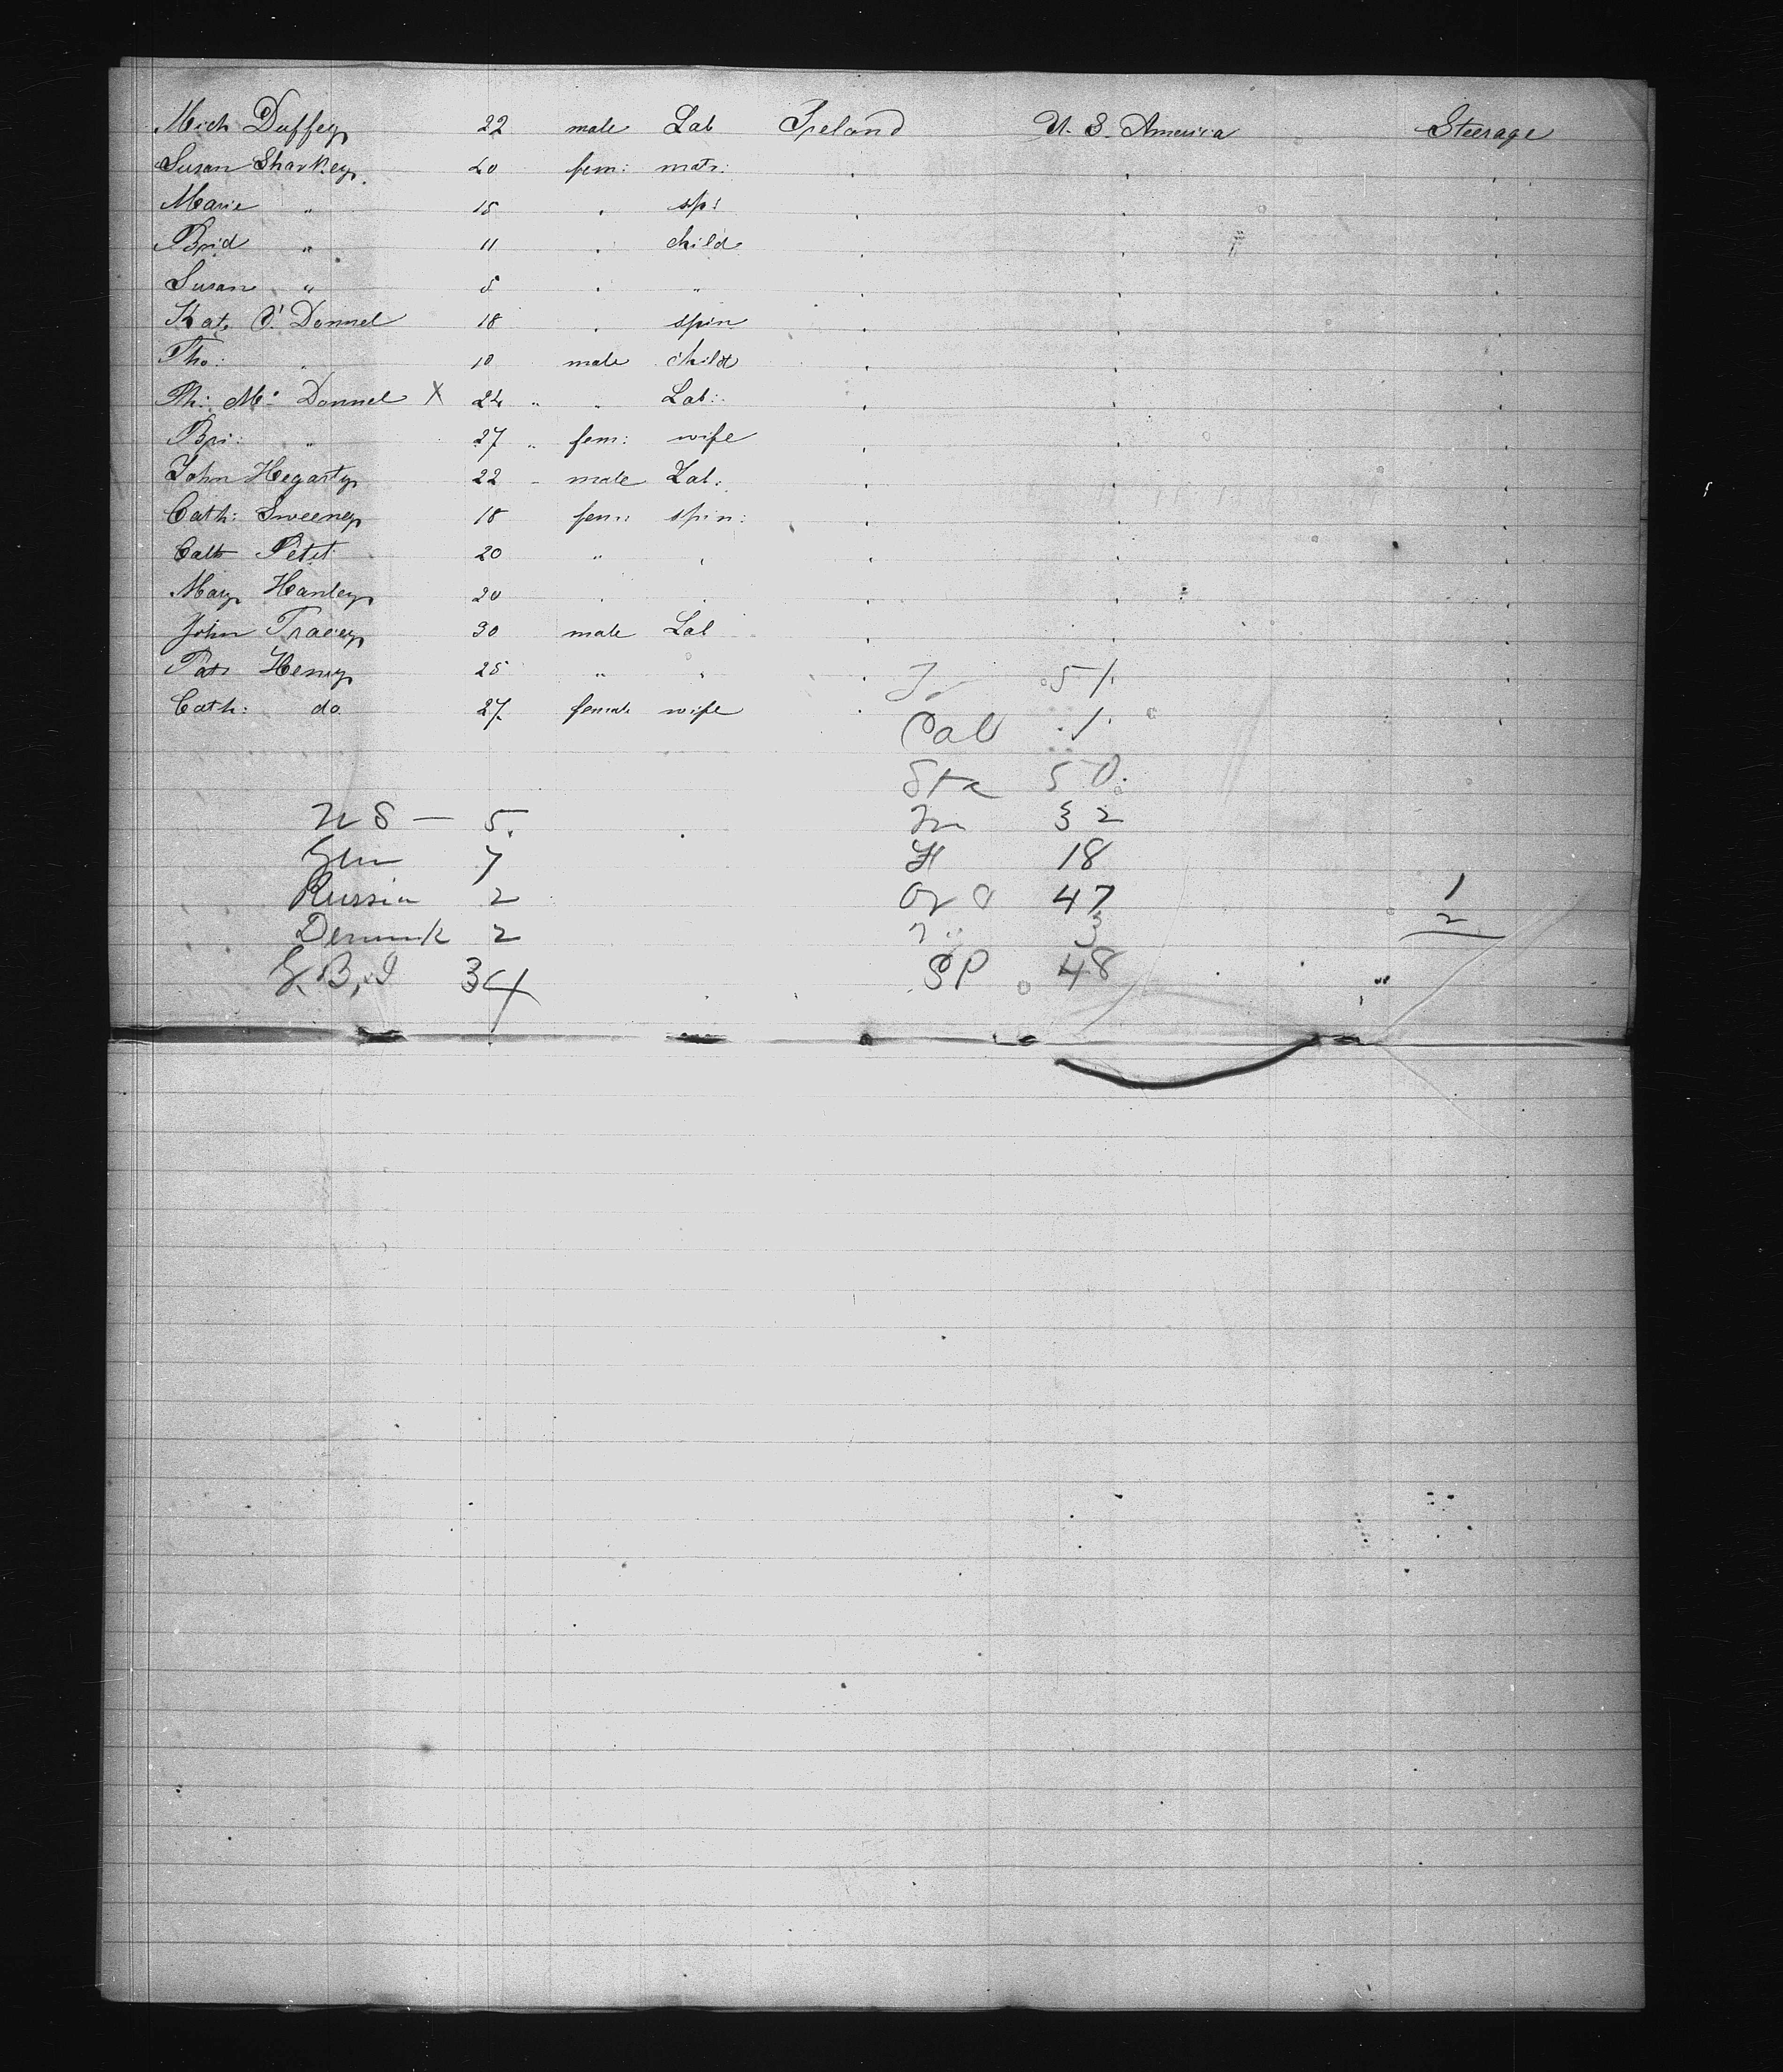 Mich Duffey 22 male Lab Ireland U. S. America Steerage
Susan Sharkey 40 fem: matr: " " "
Marie " 15 " sp: " " "
Brid " 11 " child " " "
Susan " 5 " " " " "
Kat. O'Donnel 18 " spin " " "
Tho: " 10 male child " " "
Th: Mc Donnel X 24 " " Lab: " " "
Bri: " 27 " fem: wife " " "
John Hegarty 22 - male Lab: " " "
Cath: Sweeney 18 fem: spin: " " "
Cath Petit 20 " " " " "
Mary Hanley 20 " " " " "
John Tracey 30 male Lab " " "
Patr Henry 25 " " " "
Cath: do. 27. female wife " "
51.
Cab 1
Ste 50.
U S — 5. 32
Gem 7 18
Russia 2 47 1
Denmk 2 3 2
G. B, I 34 SP 48